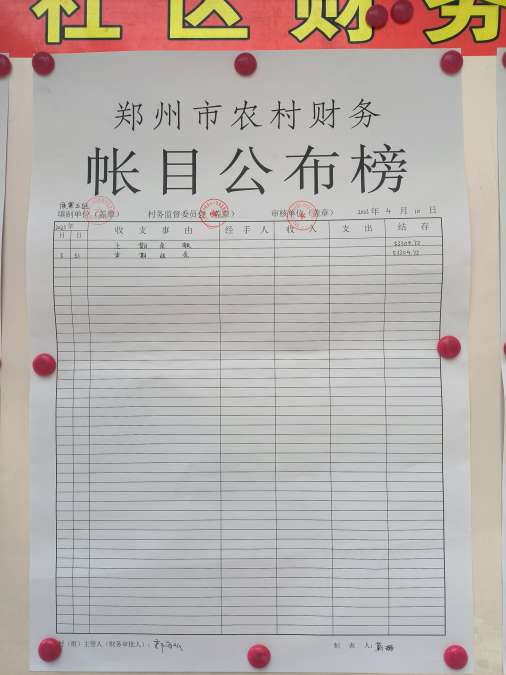 社区财务
郑州市农村财务
帐目公布榜
填制单位（盖章） 村务监督委员会（盖章） 审核单位（盖章） 2025 年 4 月 10 日
2025 年 收支事由 经手人 收入 支出 结存
月 日
上期结转 53309.72
3 31 本期结存 53309.72
村（组）主管人（财务审批人）： 制表人：